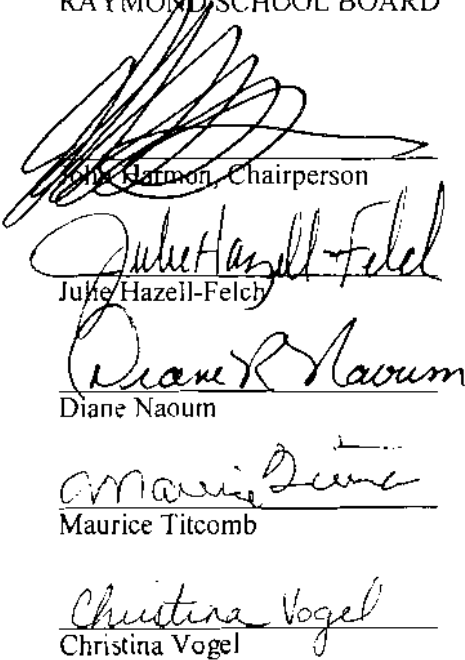 RAYMOND SCHOOL BOARD
John Harmon, Chairperson
Julie Hazell-Felch
Julie Hazell-Felch
Diane R Naoum
Diane Naoum
Maurice
Maurice Titcomb
Christina Vogel
Christina Vogel